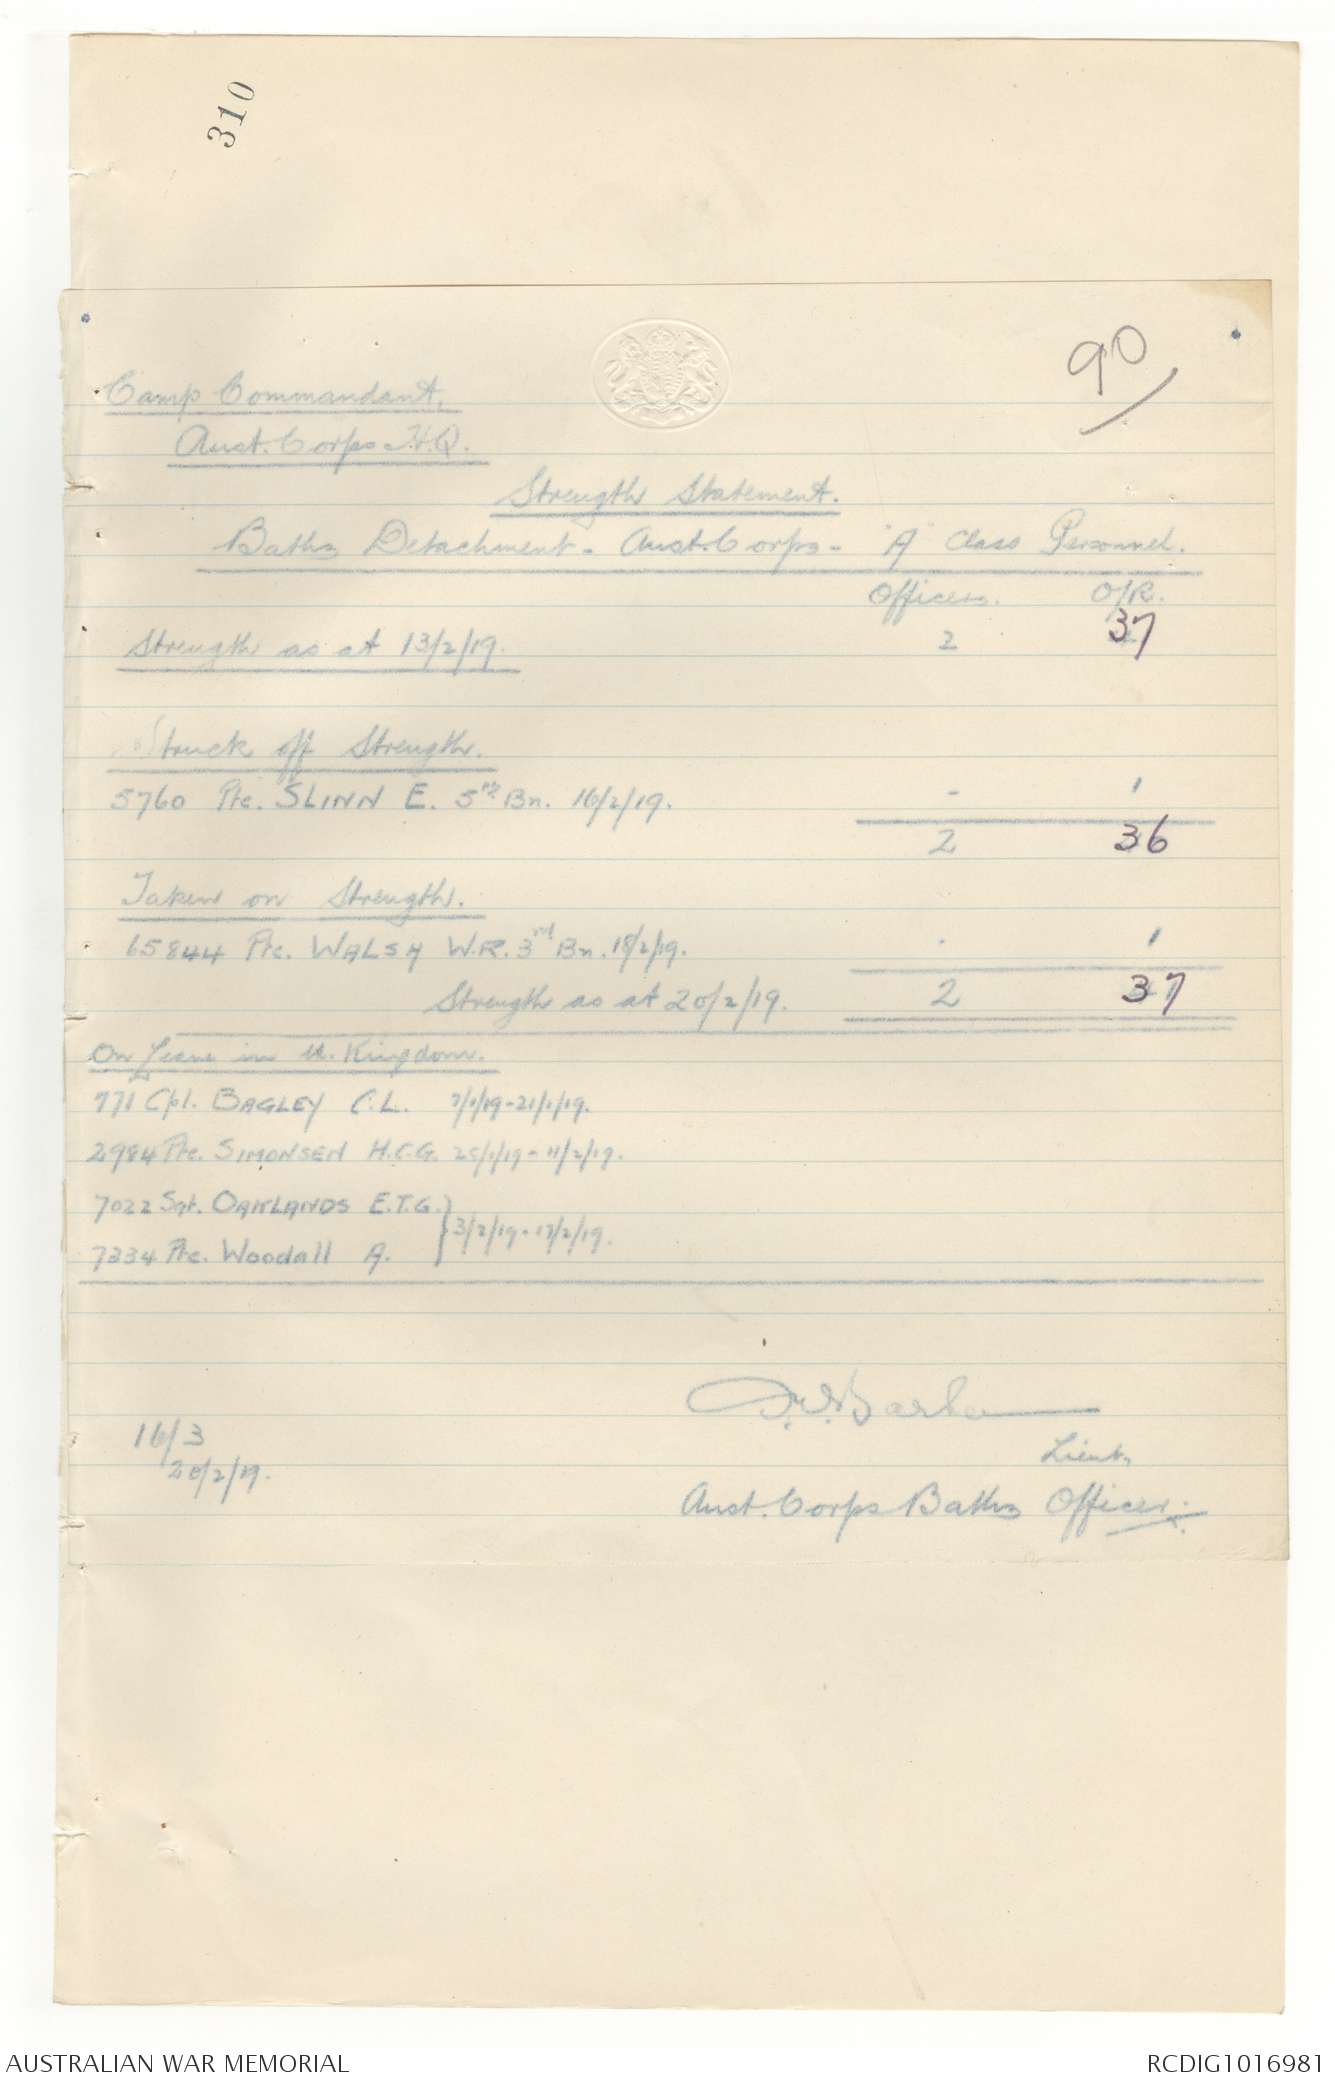 310
90
Camp Commandant,
Aust. Corps H.Q.
Strength Statement.
Baths Detachment - Aust. Corps - "A" Class Personnel.
Officers. O/R.
Strength as at 13/2/19. 2 37
Struck off Strength.
5760 Pte. SLINN E. 5th Bn. 16/2/19. - 1
2 36
Taken on Strength.
65844 Pte. WALSH W.R. 3rd Bn. 18/2/19. - 1
Strength as at 20/2/19. 2 37
On Leave in U. Kingdom.
771 Cpl. BAGLEY C.L. 7/1/19-21/1/19.
2984 Pte. SIMONSEN H.C.G. 25/1/19 - 11/2/19.
7022 Sgt. OAKLANDS E.T.G.
7334 Pte. Woodall A. } 3/2/19 - 17/2/19.
Barber
16/3
20/2/19.
Lieut,
Aust. Corps Baths Officer.
AUSTRALIAN WAR MEMORIAL RCDIG1016981